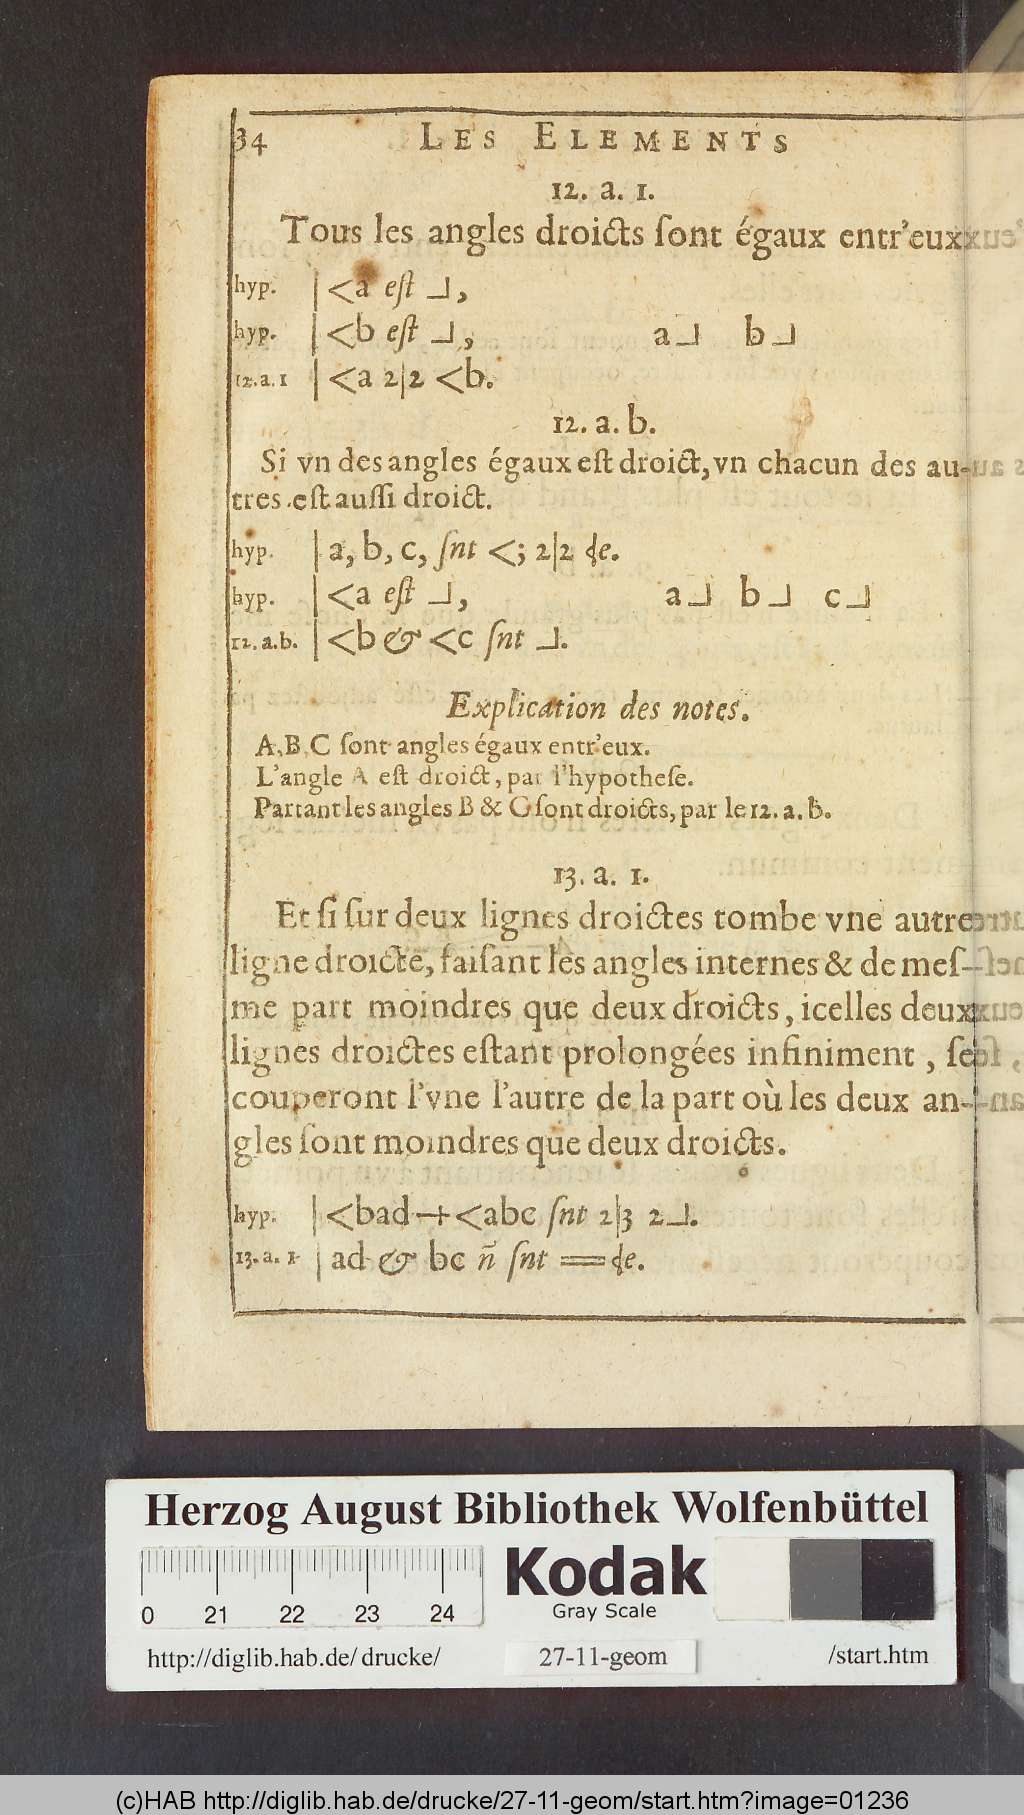 34 LES ELEMENTS
12. a. 1.
Tous les angles droicts ſont égaux entr'eux
hyp. | <a eſt ⏌,
hyp. | <b eſt ⏌, a⏌ b⏌
12.a.1 | <a 2|2 <b.
12. a. b.
Si vn des angles égaux eſt droict, vn chacun des au-
tres eſt auſſi droict.
hyp. | a, b, c, ſnt <; 2|2 de.
hyp. | <a eſt ⏌, a⏌ b⏌ c⏌
12.a.b. | <b & <c ſnt ⏌.
Explication des notes.
A, B, C ſont angles égaux entr'eux.
L'angle A eſt droict, par l'hypotheſe.
Partant les angles B & C ſont droicts, par le 12. a. b.
13. a. 1.
Et ſi ſur deux lignes droictes tombe vne autre
ligne droicte, faiſant les angles internes & de meſ-
me part moindres que deux droicts, icelles deux
lignes droictes eſtant prolongées infiniment, ſe
couperont l'vne l'autre de la part où les deux an-
gles ſont moindres que deux droicts.
hyp. | <bad + <abc ſnt 2|3 2⏌.
13.a.1 | ad & bc ñ ſnt == de.
Herzog August Bibliothek Wolfenbüttel
Kodak
Gray Scale
0 21 22 23 24
http://diglib.hab.de/drucke/ 27-11-geom /start.htm
(c)HAB http://diglib.hab.de/drucke/27-11-geom/start.htm?image=01236